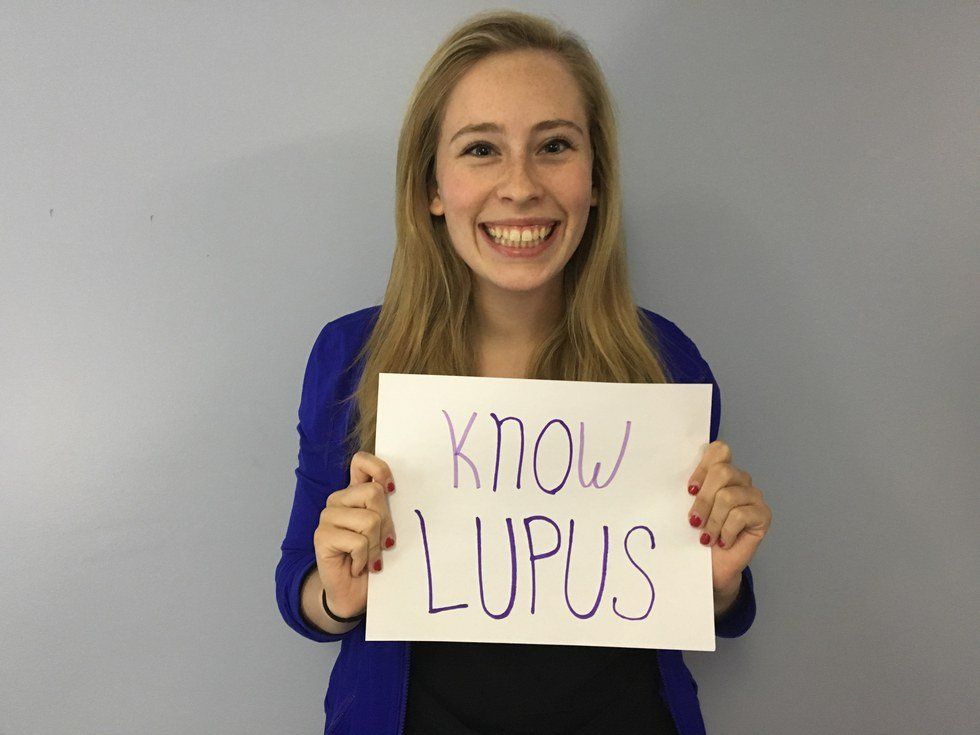 KNOW
LUPUS